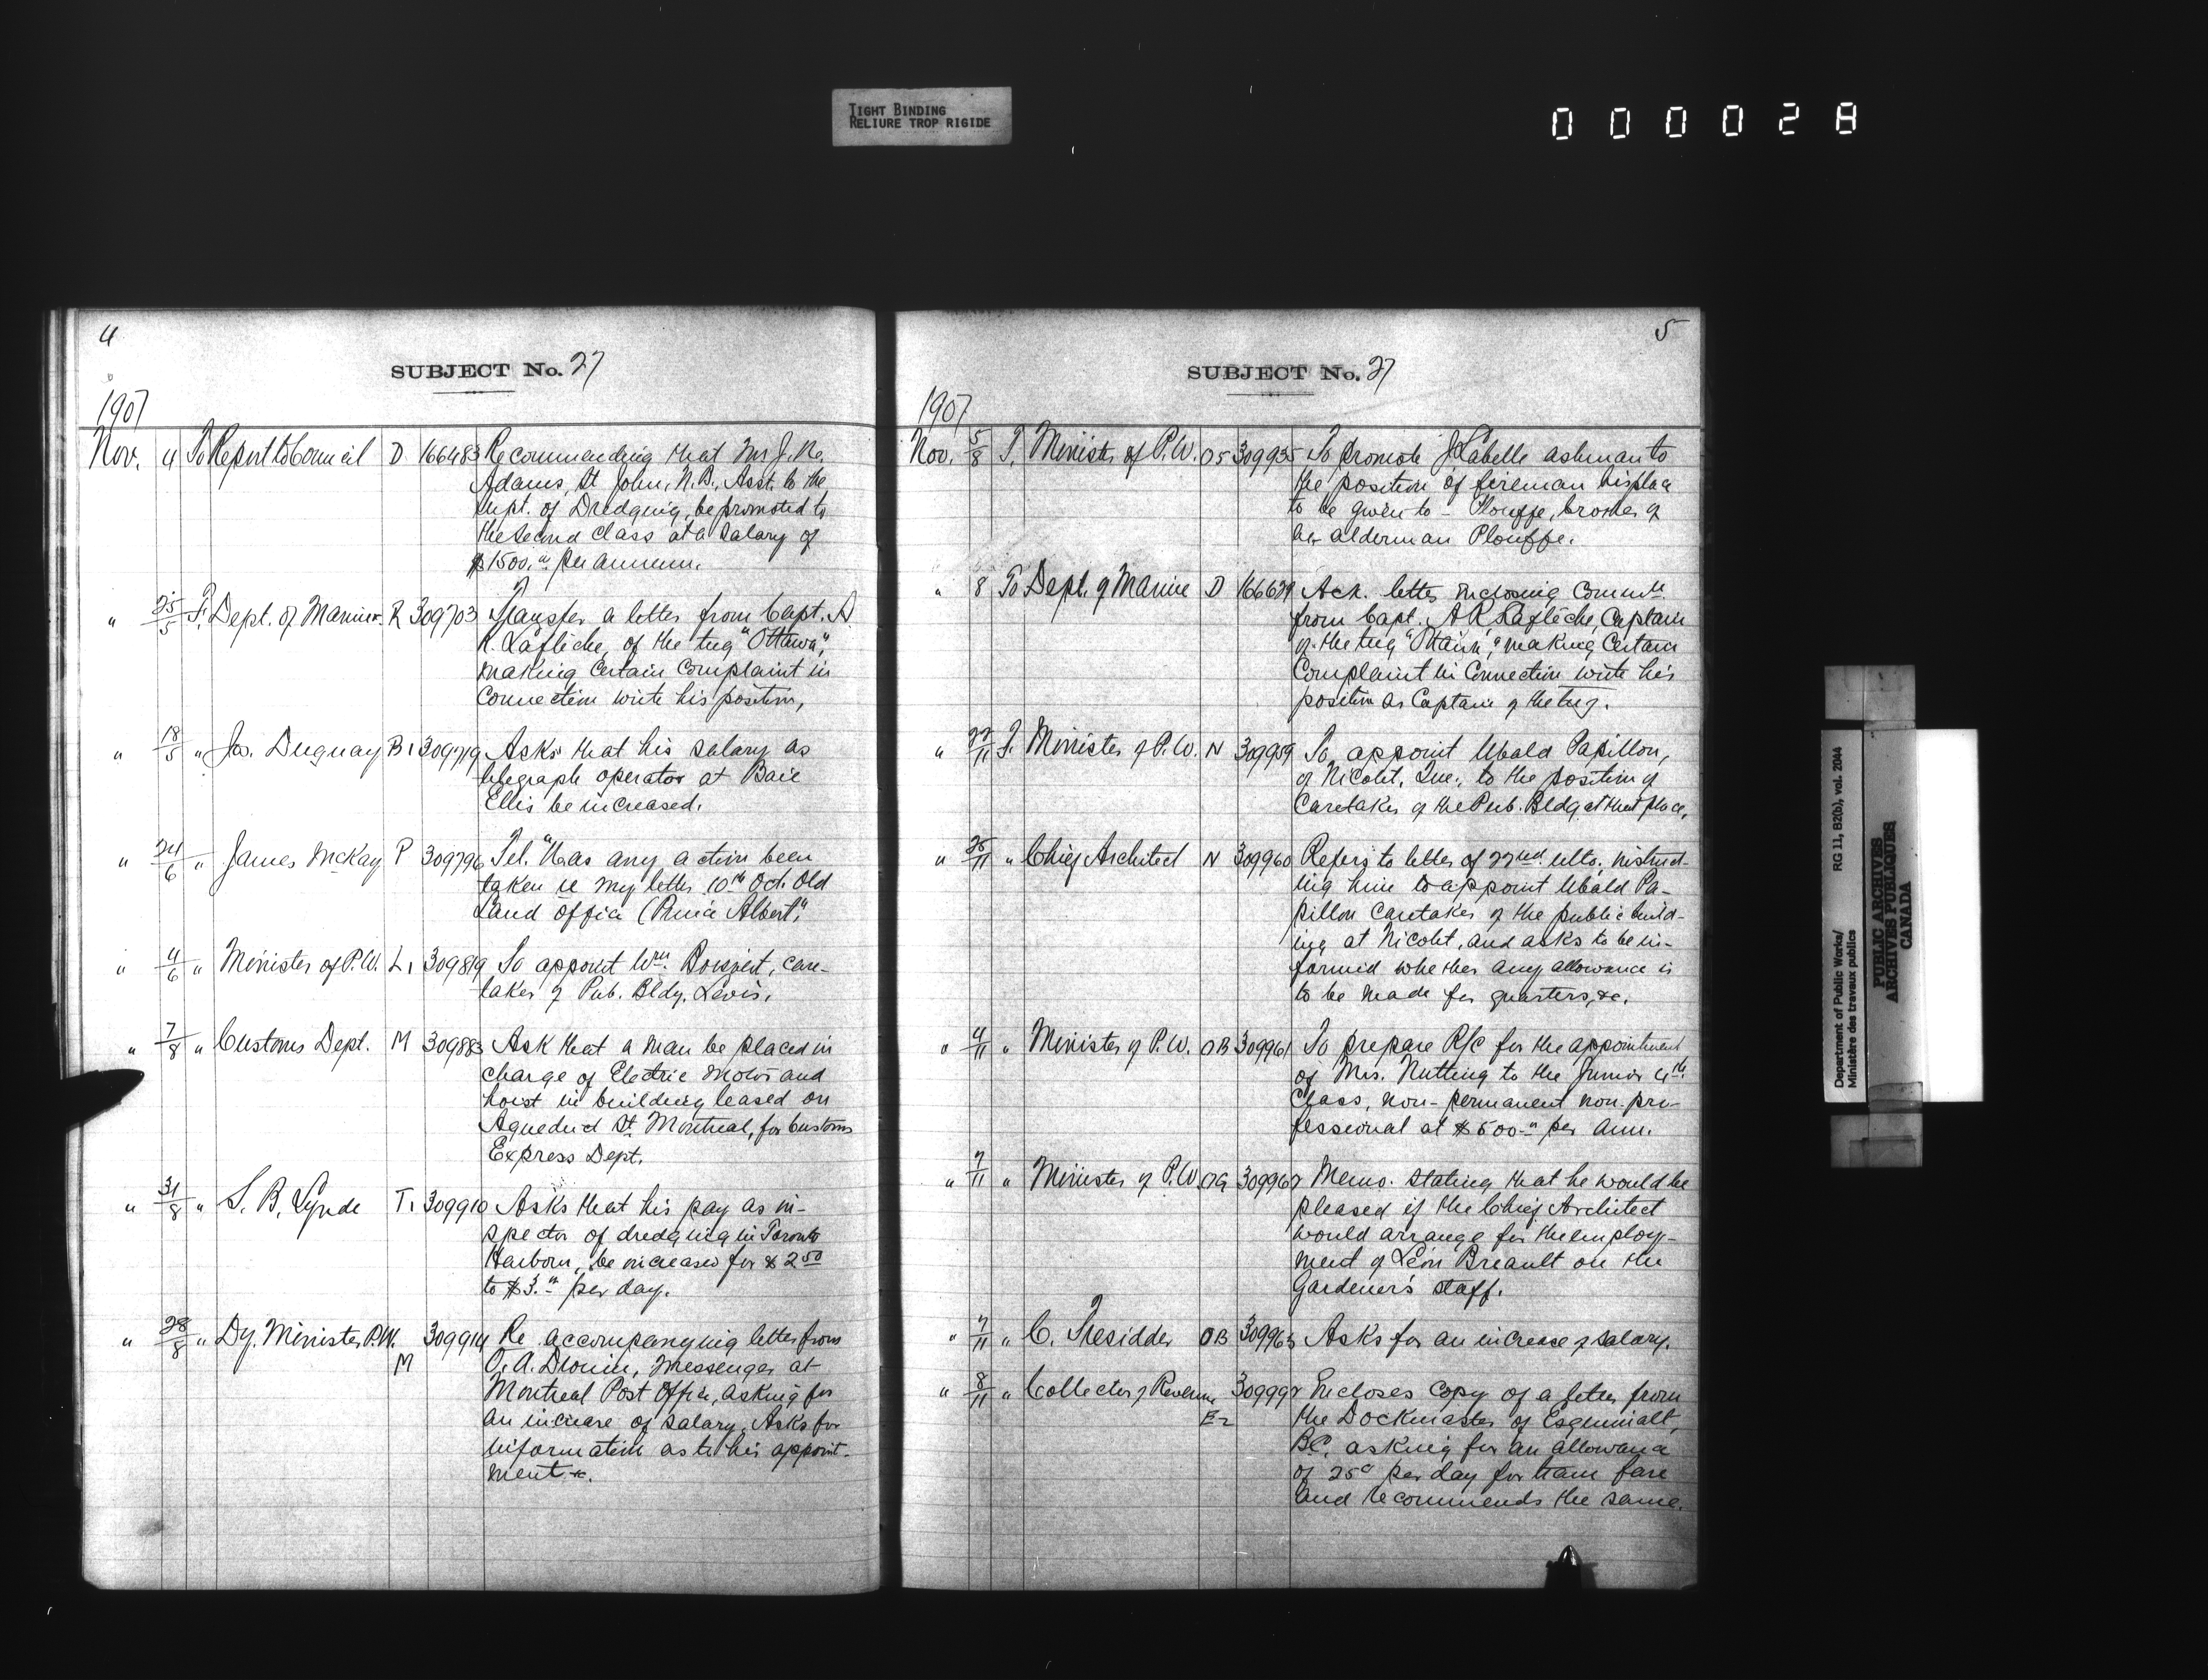 TIGHT BINDING
RELIURE TROP RIGIDE
000028
4
SUBJECT No. 27
1907
Nov. 4 To Report to Council D 166483 Recommending that Mr J. Ke.
Adams, St John, N.B., Asst. to the
Supt. of Dredging, be promoted to
the second class at a salary of
$1500.00 per annum.
" 25/5 F. Dept. of Marine R 309703 Transfer a letter from Capt. A
R. Lafleche, of the tug "Ottawa",
making certain complaint in
connection with his position,
" 18/5 " Jos. Duguay B1 309779 Asks that his salary as
telegraph operator at Baie
Ellis be increased.
" 24/6 " James McKay P 309796 Tel. "Has any action been
taken re my letter 10th Oct. Old
Land Office (Prince Albert".
" 4/6 " Minister of P.W. L1 309819 To appoint Wm. care-
taker of Pub. Bldg. Levis.
" 7/8 " Customs Dept. M 309883 Ask that a man be placed in
charge of Electric motor and
hoist in building leased on
Aqueduct St. Montreal, for Customs
Express Dept.
" 31/8 " S. B. Lynde T1 309910 Asks that his pay as in-
spector of dredging in Toronto
Harbour, be increased for $2.50
to $3.00 per day.
" 28/8 " Dy. Minister P.W. 309914 Re accompanying letter from
M O. A. Drouin, messenger at
Montreal Post Office, asking for
an increase of salary. Asks for
information as to his appoint-
ment &c.
5
SUBJECT No. 27
1907
Nov. 5/8 F. Minister of P.W. O5 309935 To promote J Labelle ashman to
the position of fireman his place
to be given to - Plouffe, brother of
alderman Plouffe.
" 8 To Dept. of Marine D 166679 Ack. letter enclosing commn.
from Capt. A R Lafleche, Captain
of the tug "Ottawa", making certain
complaint in connection with his
position as Captain of the tug.
" 22/11 F. Minister of P.W. N 309959 To appoint Ubald Papillon,
of Nicolet, Que., to the position of
Caretaker of the Pub. Bldg at that place.
" 25/11 " Chief Architect N 309960 Refers to letter of 22nd ulto. instruct-
ing him to appoint Ubald Pa-
pillon caretaker of the public build-
ing at Nicolet, and asks to be in-
formed whether any allowance is
to be made for quarters, &c.
" 4/11 " Minister of P.W. OB 309961 To prepare R/C for the appointment
of Mrs. Nutting to the Junior 4th
Class, non-permanent non-pro-
fessional at $500.00 per ann.
" 7/11 " Minister of P.W. OG 309962 Memo. stating that he would be
pleased if the Chief Architect
would arrange for the employ-
ment of Léon Breault on the
Gardener's staff.
" 7/11 " C. Tresidder OB 309963 Asks for an increase of salary.
" 8/11 " Collector of Revenue 309992 Encloses copy of a letter from
E2 the Dockmaster of Esquimalt,
B.C. asking for an allowance
of 25c per day for tram fare
and recommends the same.
Department of Public Works/
Ministère des travaux publics
RG 11, B2(b), vol. 2044
PUBLIC ARCHIVES
ARCHIVES PUBLIQUES
CANADA